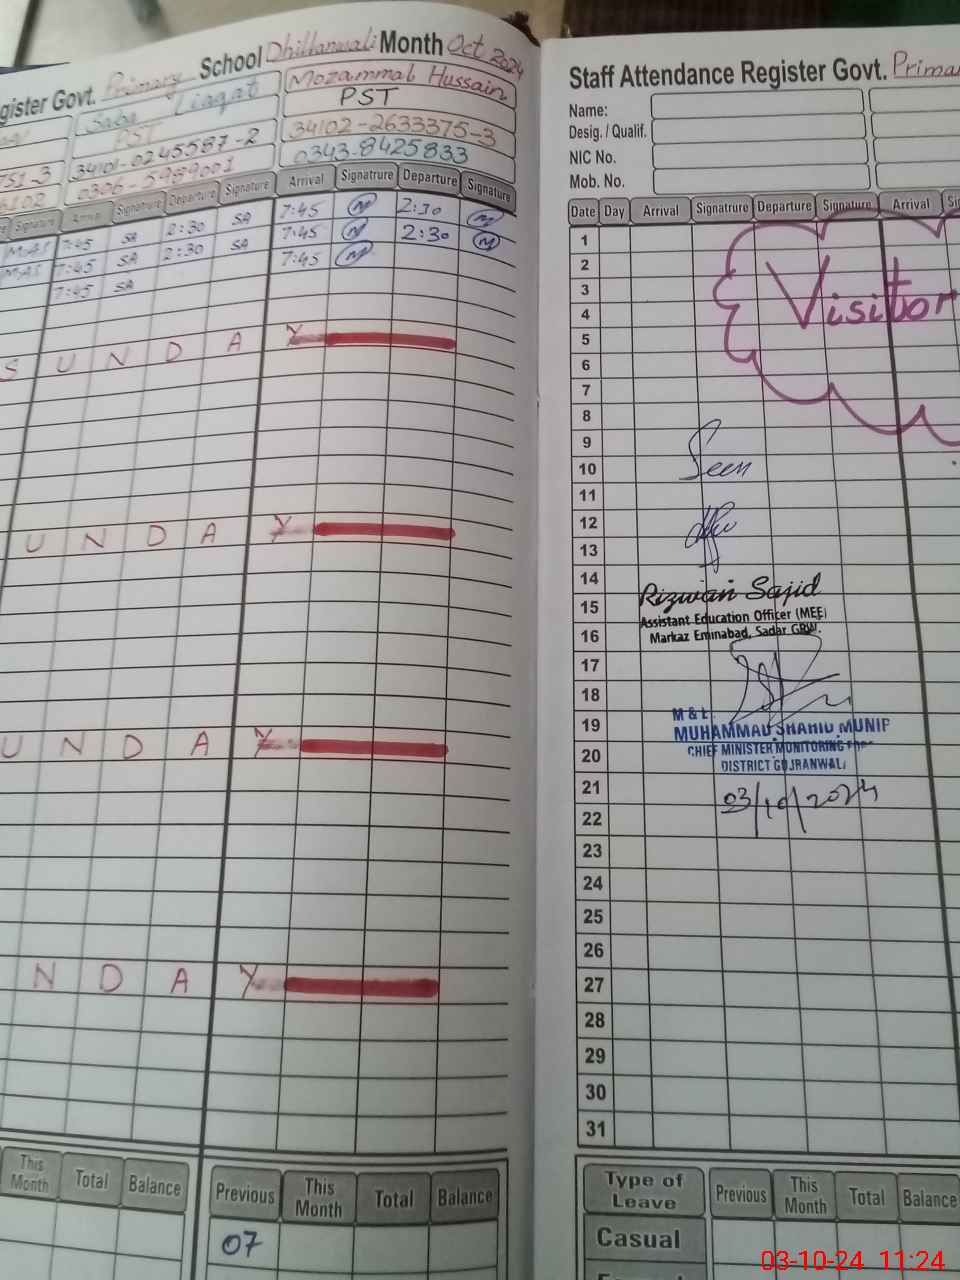 gister Govt. Primary School Dhillanwali Month Oct 2024
Saba Liaqat Mozammal Hussain
PST PST
751-3 34101-0245587-2 34102-2633375-3
0306-5989001 0343-8425833
Signature Arrival Signature Departure Signature Arrival Signatrure Departure Signature
MAS 7:45 SA 2:30 SA 7:45 M 2:30 M
MAS 7:45 SA 2:30 SA 7:45 M 2:30 M
7:45 SA 7:45 M
S U N D A Y
U N D A Y
U N D A Y
N D A Y
This Month Total Balance Previous This Month Total Balance
07
Staff Attendance Register Govt. Primar
Name:
Desig. / Qualif.
NIC No.
Mob. No.
Date Day Arrival Signatrure Departure Signature Arrival
1
2
3
Visitor
4
5
6
7
8
9
Seen
10
11
12
13
14
Rizwan Sajid
15
Assistant Education Officer (MEE)
16
Markaz Eminabad, Sadar GRW.
17
18
M & E
19
MUHAMMAD SHAHID MUNIR
20
CHIEF MINISTER MONITORING
DISTRICT GUJRANWALA
21
03/10/2024
22
23
24
25
26
27
28
29
30
31
Type of Leave Previous This Month Total Balance
Casual
03-10-24 11:24